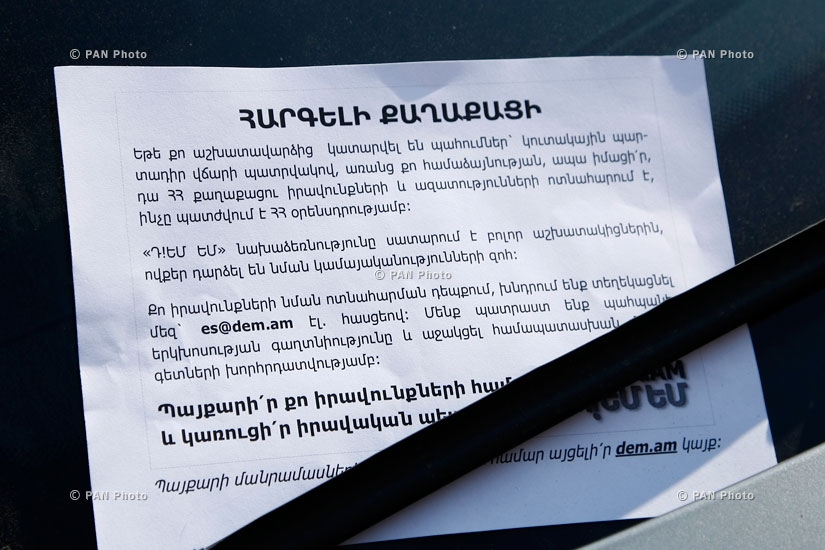 © PAN Photo
© PAN Photo
ՀԱՐԳԵԼԻ ՔԱՂԱՔԱՑԻ
Եթե քո աշխատավարձից կատարվել են պահումներ՝ կուտակային պար-
տադիր վճարի պատրվակով, առանց քո համաձայնության, ապա իմացի՛ր,
դա ՀՀ քաղաքացու իրավունքների և ազատությունների ոտնահարում է,
ինչը պատժվում է ՀՀ օրենսդրությամբ:
«Դ!ԵՄ ԵՄ» նախաձեռնությունը սատարում է բոլոր աշխատակիցներին,
ովքեր դարձել են նման կամայականությունների զոհ:
© PAN Photo
Քո իրավունքների նման ոտնահարման դեպքում, խնդրում ենք տեղեկացնել
մեզ՝ es@dem.am էլ. հասցեով: Մենք պատրաստ ենք պահպանել
երկխոսության գաղտնիությունը և աջակցել համապատասխան
գետների խորհրդատվությամբ:
Պայքարի՛ր քո իրավունքների համ
և կառուցի՛ր իրավական պե
AM
ԴԵՄ ԵՄ
Պայքարի մանրամասներ համար այցելի՛ր dem.am կայք:
© PAN Photo
© PAN Photo